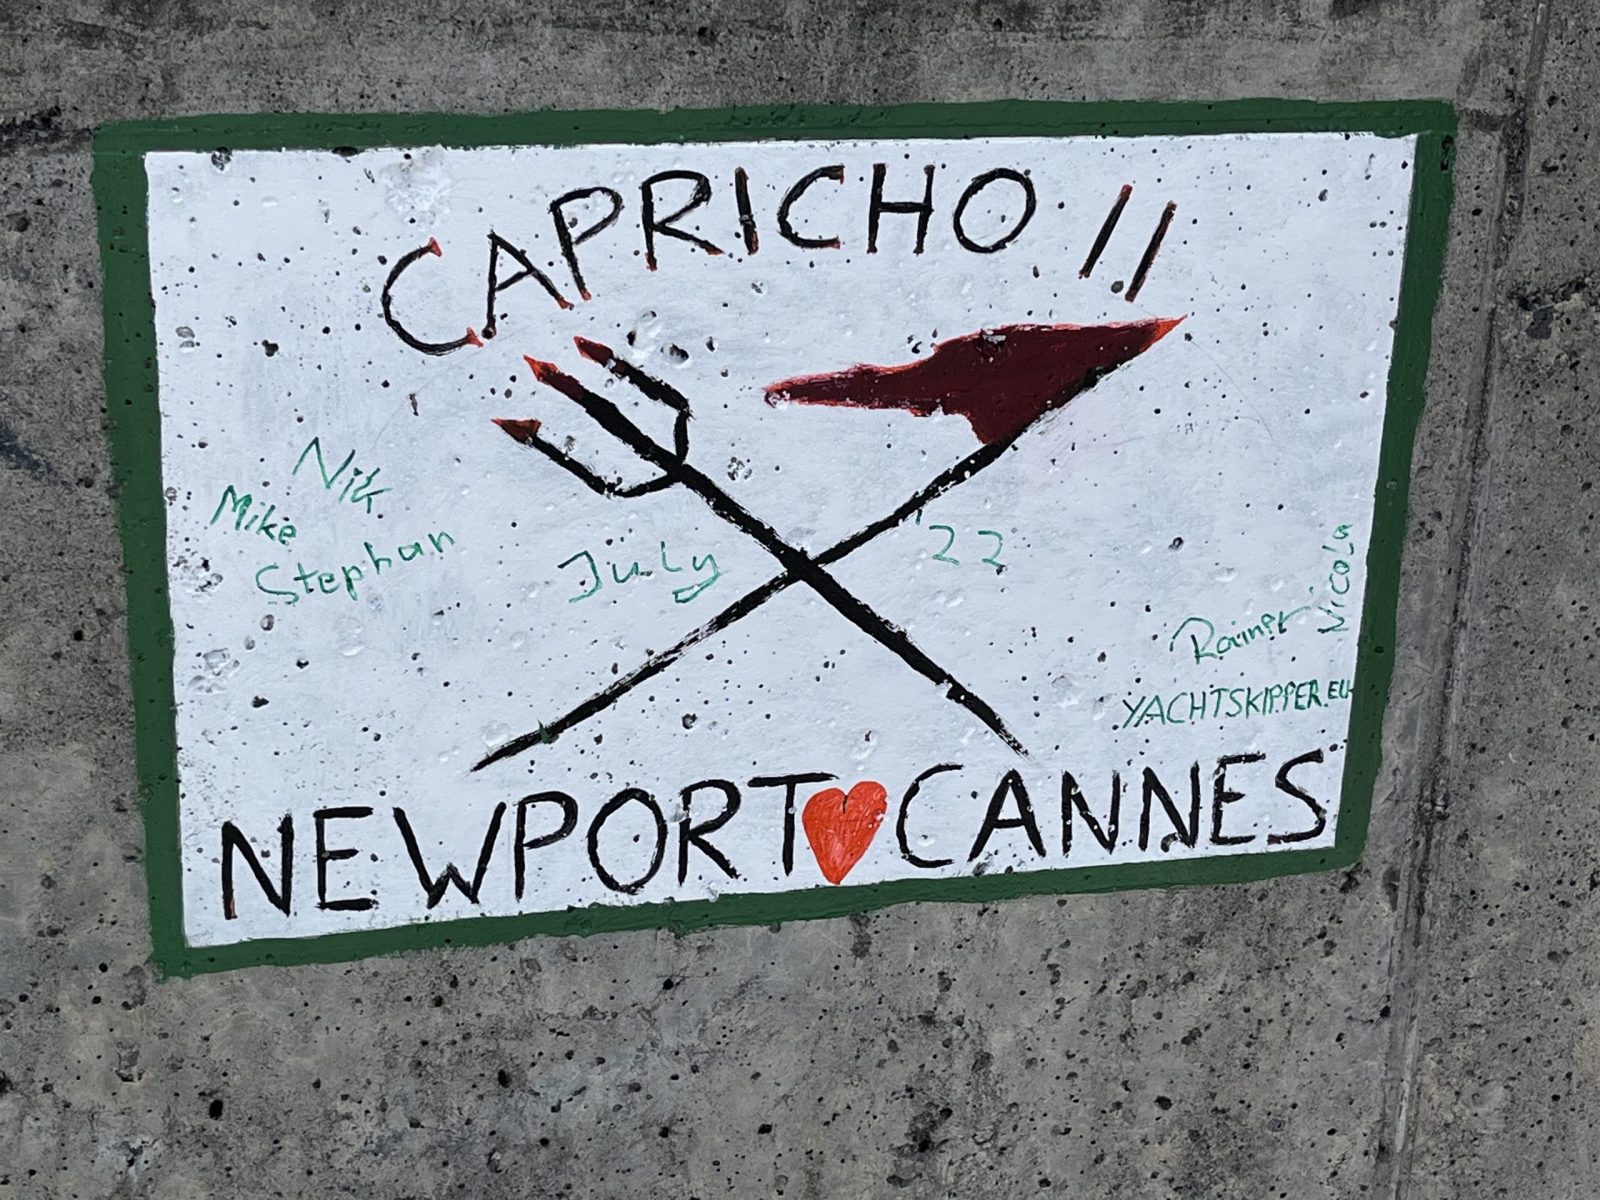 CAPRICHO II
Nik
Mike
Stephan
July '22
Nicola
Rainer
YACHTSKIPPER.
NEWPORT CANNES